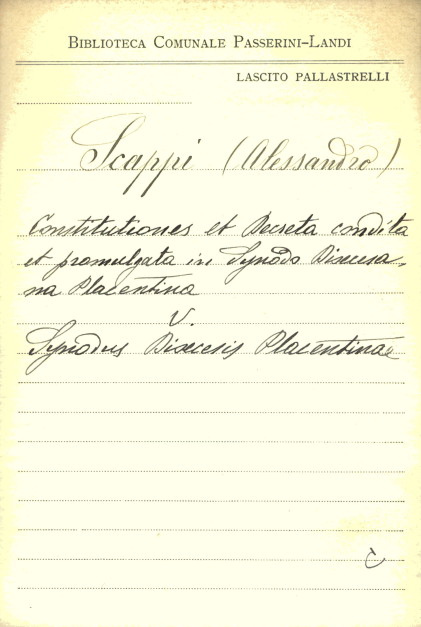 BIBLIOTECA COMUNALE PASSERINI-LANDI
LASCITO PALLASTRELLI
Scappi (Alessandro)
Constitutiones et Decreta condita
et promulgata in Synodo Dioecesa-
na Placentina
V.
Synodus Dioecesis Placentinae